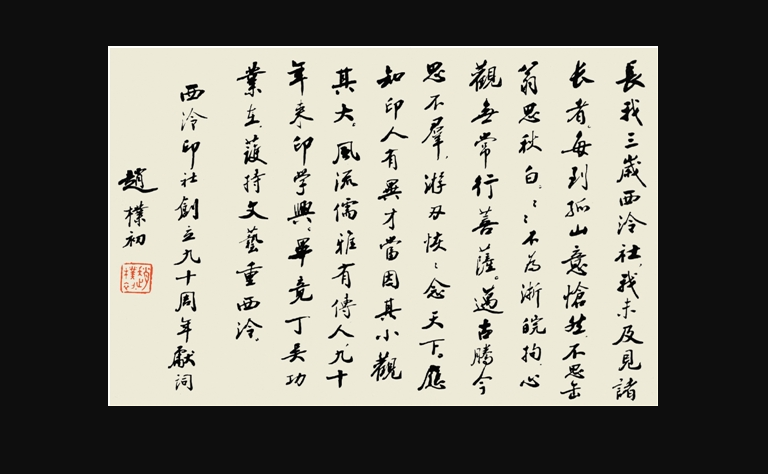 長我三嵗西泠社我未及見諸
长者每到孤山意愴然不思缶
翁思秋白〻〻不為浙皖拘心
觀無常行善薩邁古騰今
思不羣游刃恢〻念天下應
知印人有異才當因其小觀
其大風流儒雅有傳人九十
年来印学興畢竟丁吴功
業在護持文藝重西泠
西泠印社創立九十周年獻词
趙樸初
趙樸初